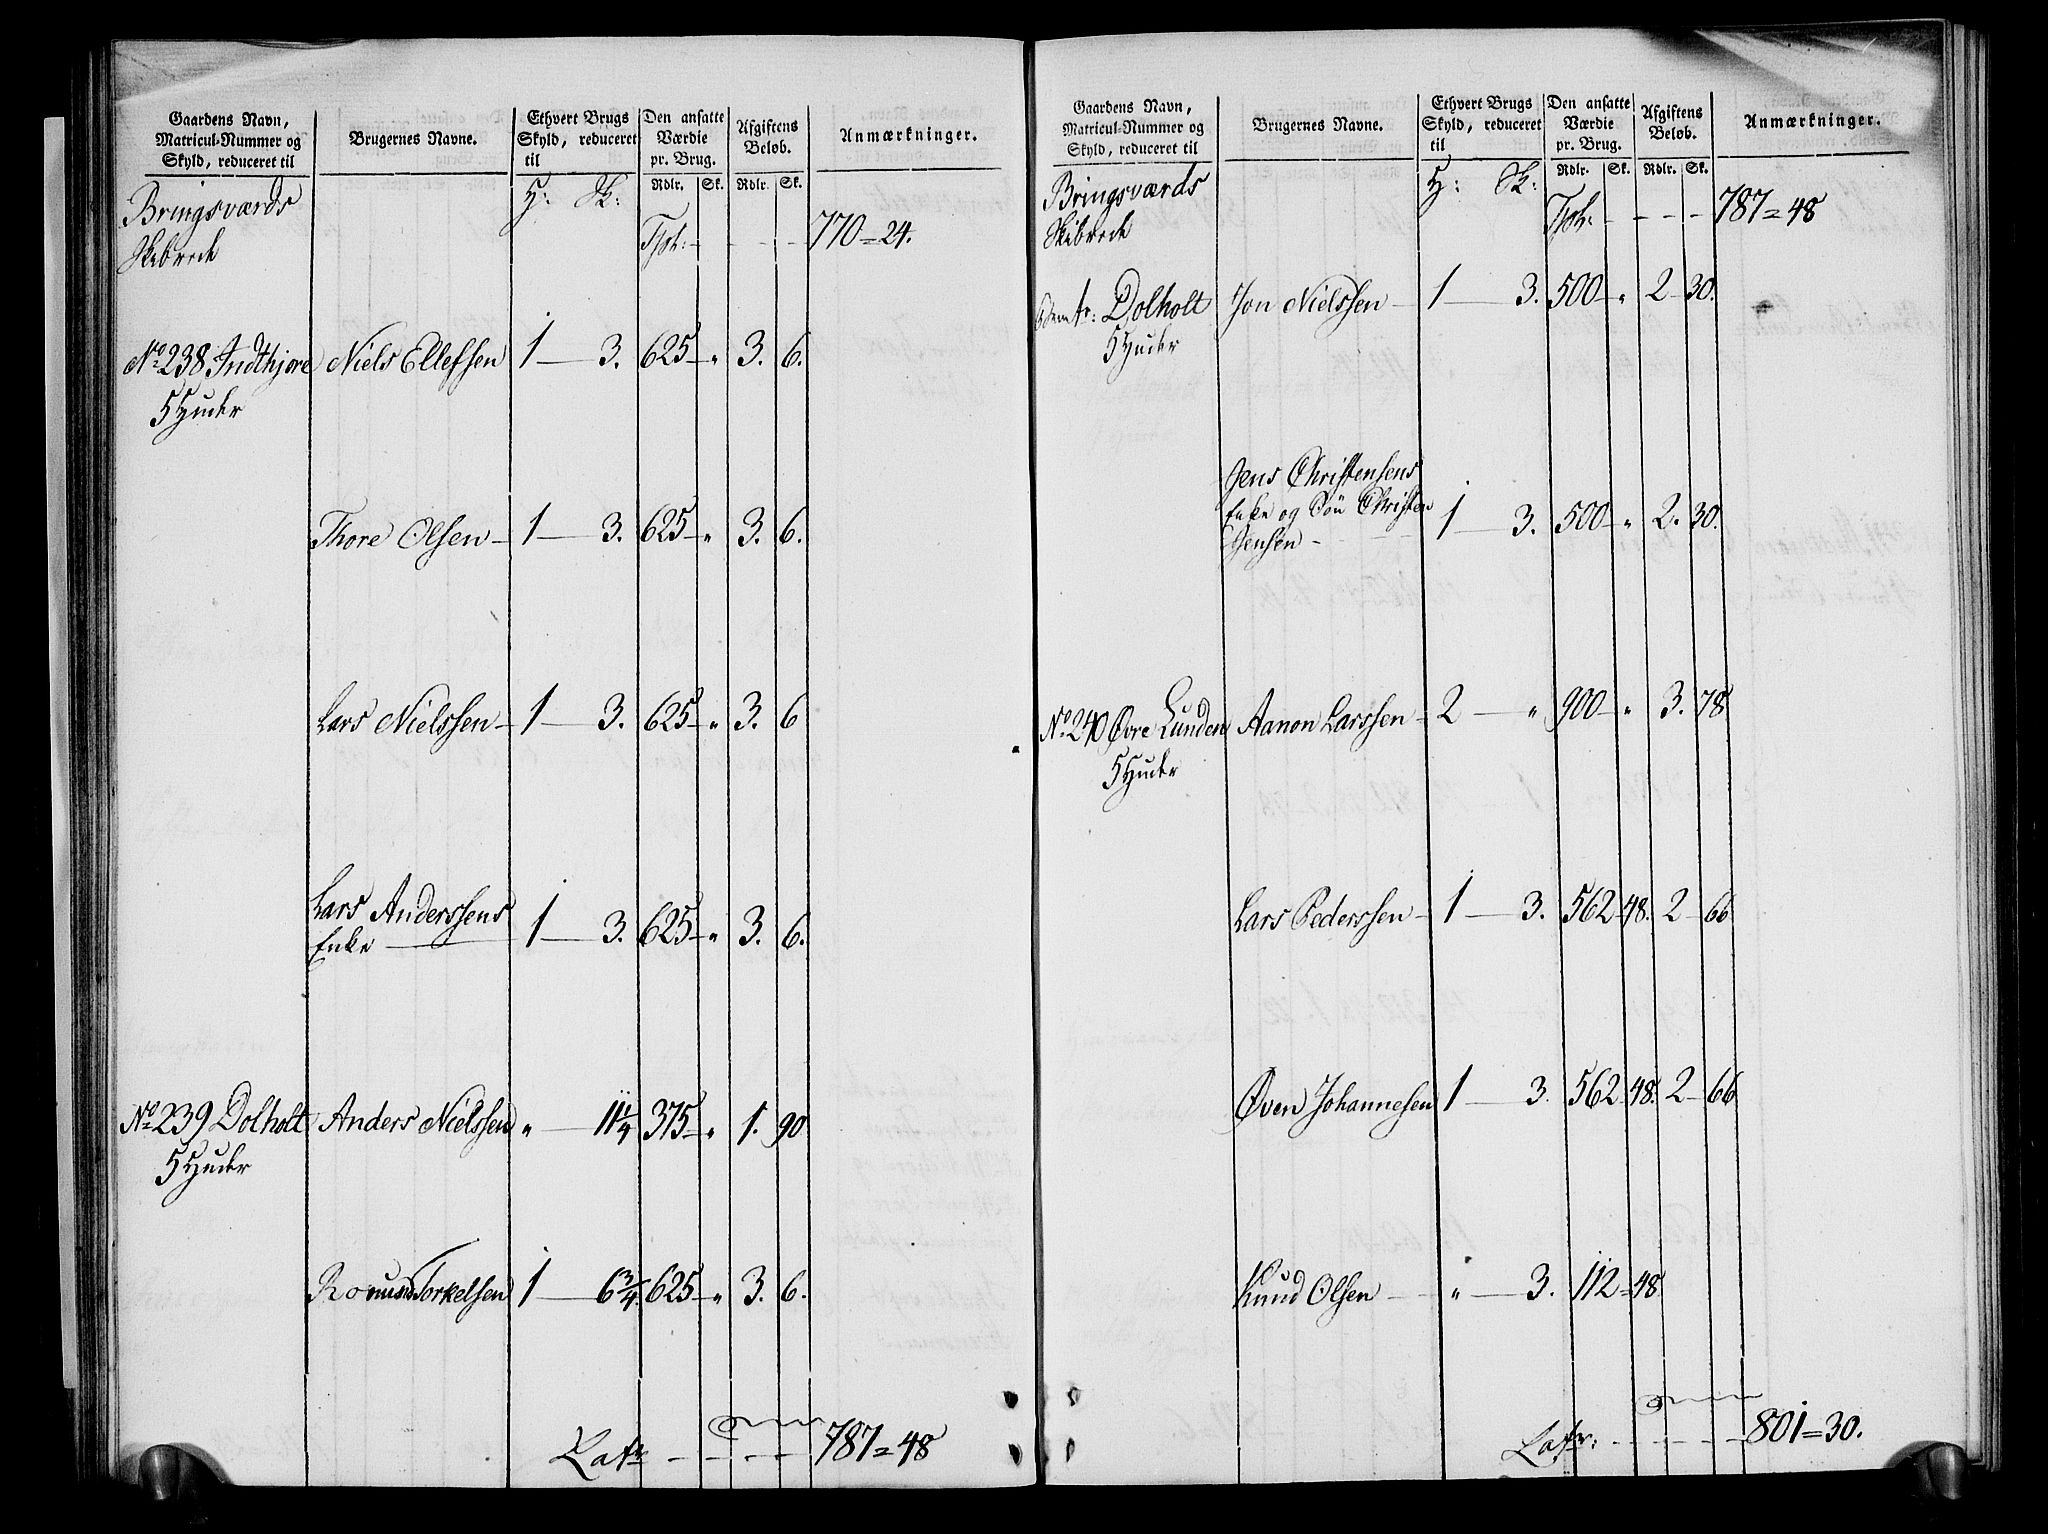 Gaardens Navn, Matricul-Nummer og Skyld, reduceret til | Brugernes Navne. | Ethvert Brugs Skyld, reduceret til | Den ansatte Værdie pr. Brug. | Afgiftens Beløb. | Anmærkninger.
Rdlr. Sk. Rdlr. Sk.
Bringsværds H: Sk:
Skibrede Tpt: - - - - 770=24.
No 238 Indthjore Niels Ellefsen 1 — 3. 625 — " 3. 6.
5 Huder
Thore Olsen — 1 — 3. 625 — " 3. 6.
Lars Nielssen — 1 — 3. 625 — " 3. 6
Lars Anderssens
Enke — 1 — 3. 625 — " 3. 6.
No 239 Dolholt Anders Nielssen " — 11 1/4 375 — " 1. 90
5 Huder
Torkelsen 1 — 6 3/4. 625 — " 3. 6.
Latr - - - - 787=48
Gaardens Navn, Matricul-Nummer og Skyld, reduceret til | Brugernes Navne. | Ethvert Brugs Skyld, reduceret til | Den ansatte Værdie pr. Brug. | Afgiftens Beløb. | Anmærkninger.
Rdlr. Sk. Rdlr. Sk.
Bringsværds H: Sk:
Skibrede Tpt: - - - - 787=48
Dolholt Jon Nielssen — 1 — 3. 500 — " 2 — 30.
5 Huder
Jens Christensens
Enke og Søn Christen
Jensen - - - 1 — 3. 500 — " 2. 30.
No 240 Øvre Lunden Aanon Larssen — 2 — " 900 — " 3. 78
5 Huder
Lars Pederssen — 1 — 3. 562 — 48. 2 — 66
Øven Johannesen 1 — 3. 562 — 48. 2 — 66
Knud Olsen — " — 3. 112 = 48
Latr: - - - - 801=30.